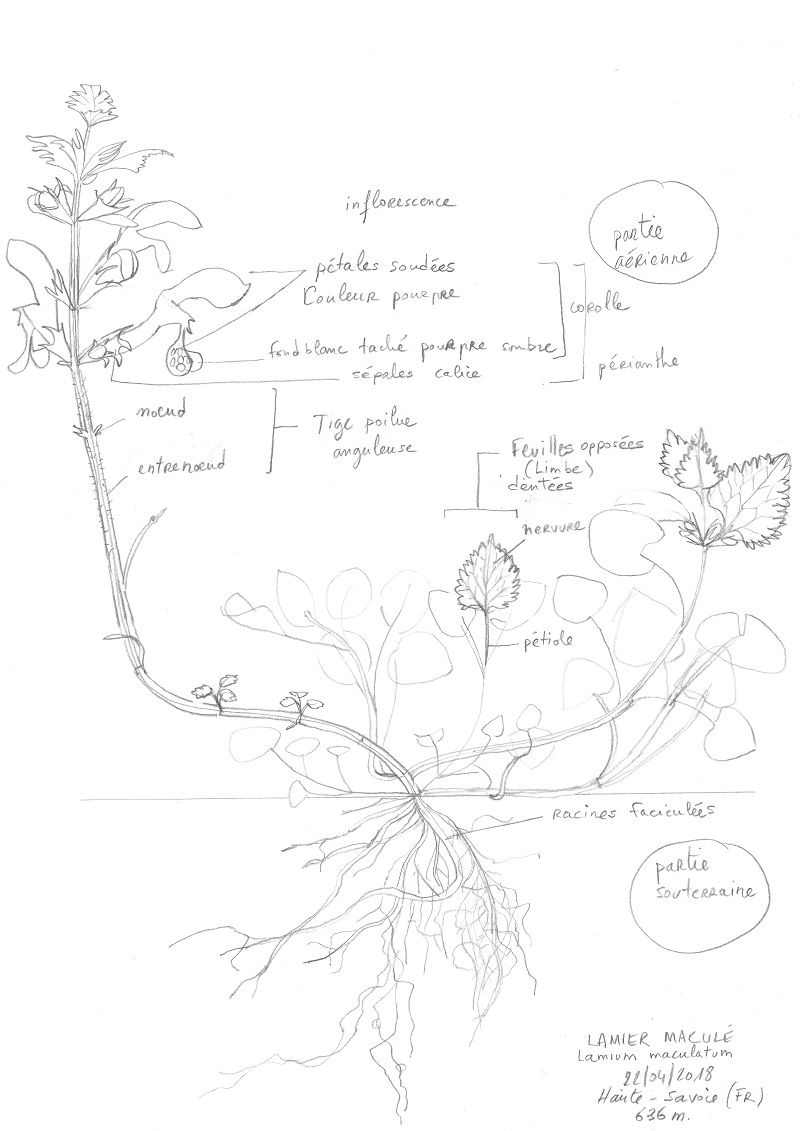 inflorescence
partie
aérienne
pétales soudées
Couleur pourpre
corolle
fond blanc taché pourpre sombre
sépales calice
périanthe
noeud
Tige poilue
anguleuse
entrenoeud
Feuilles opposées
(Limbe)
dentées
nervure
pétiole
racines faciculées
partie
souterraine
LAMIER MACULÉ
Lamium maculatum
22/04/2018
Haute-Savoie (FR)
636 m.